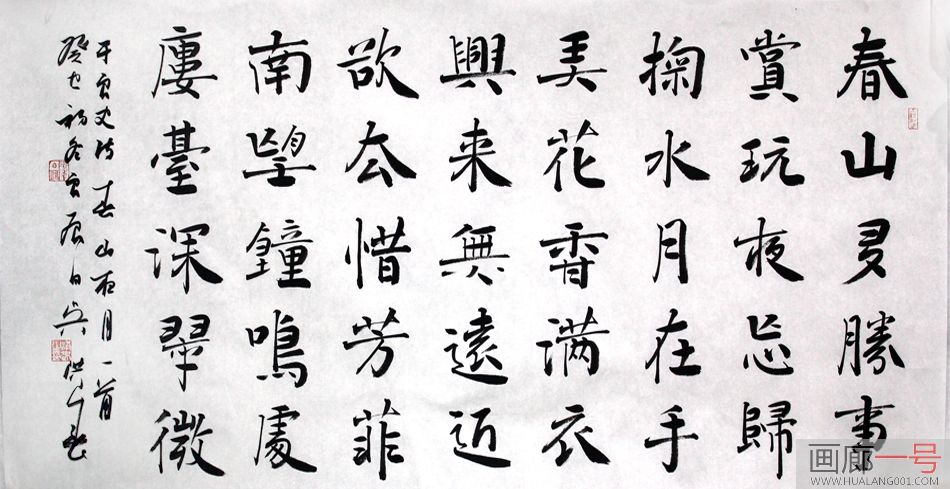 春山多勝事
賞玩夜忘歸
掬水月在手
弄花香满衣
興来無遠近
欲去惜芳菲
南望鐘鳴處
廔臺深翠微
于良史诗春山夜月一首
癸巳初冬良辰日吴
画廊一号
WWW.HUALANG001.COM